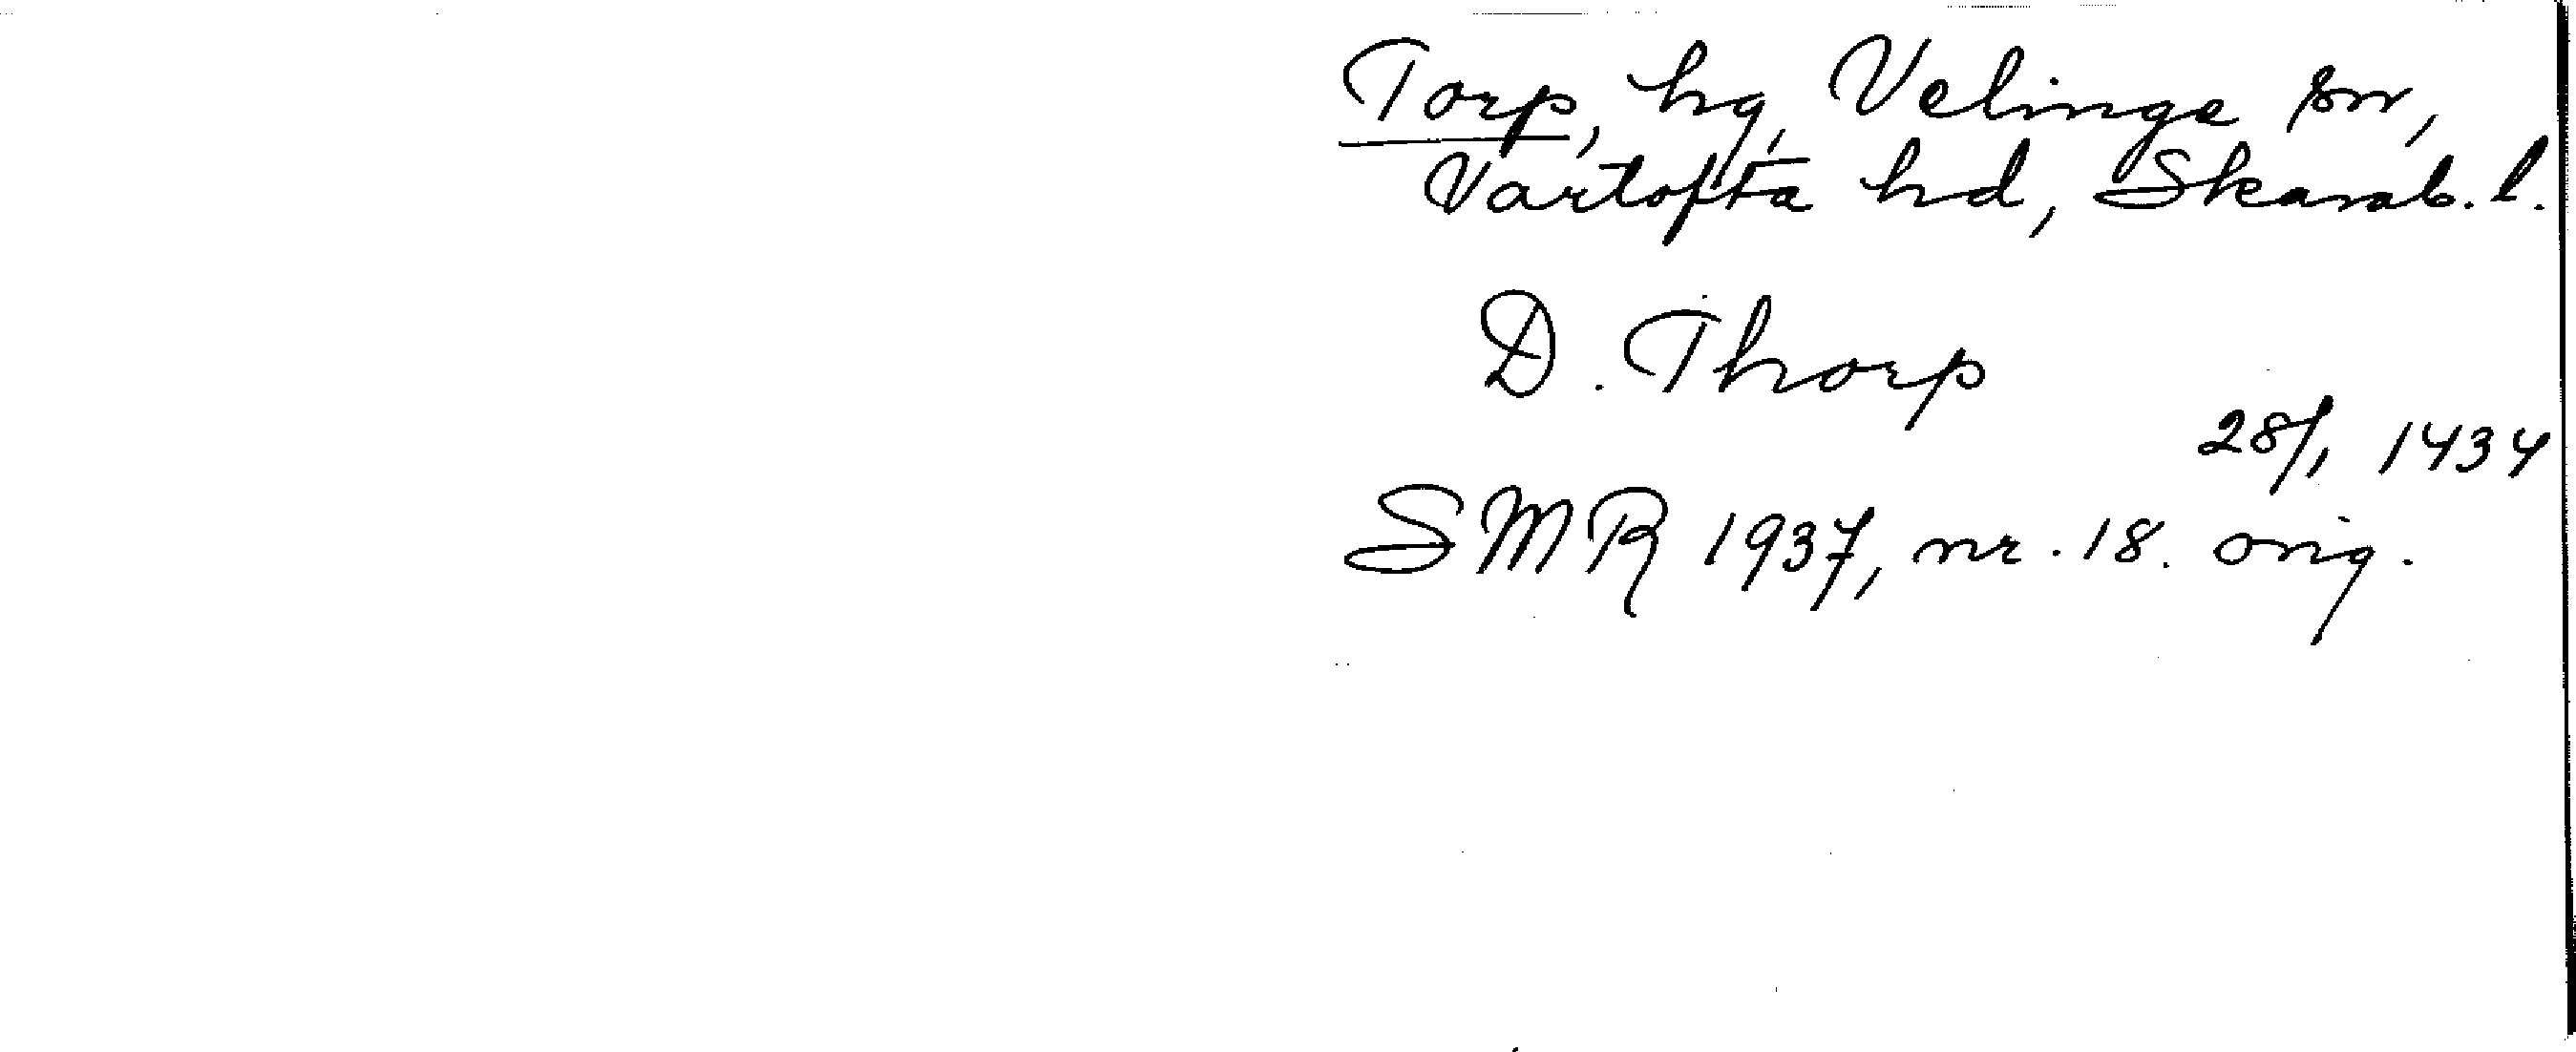 Torp, hg, Velinge sn,
Vartofta hd, Skarab. l.
D. Thorp
28/1 1434
SMR 1937, nr. 18. orig.